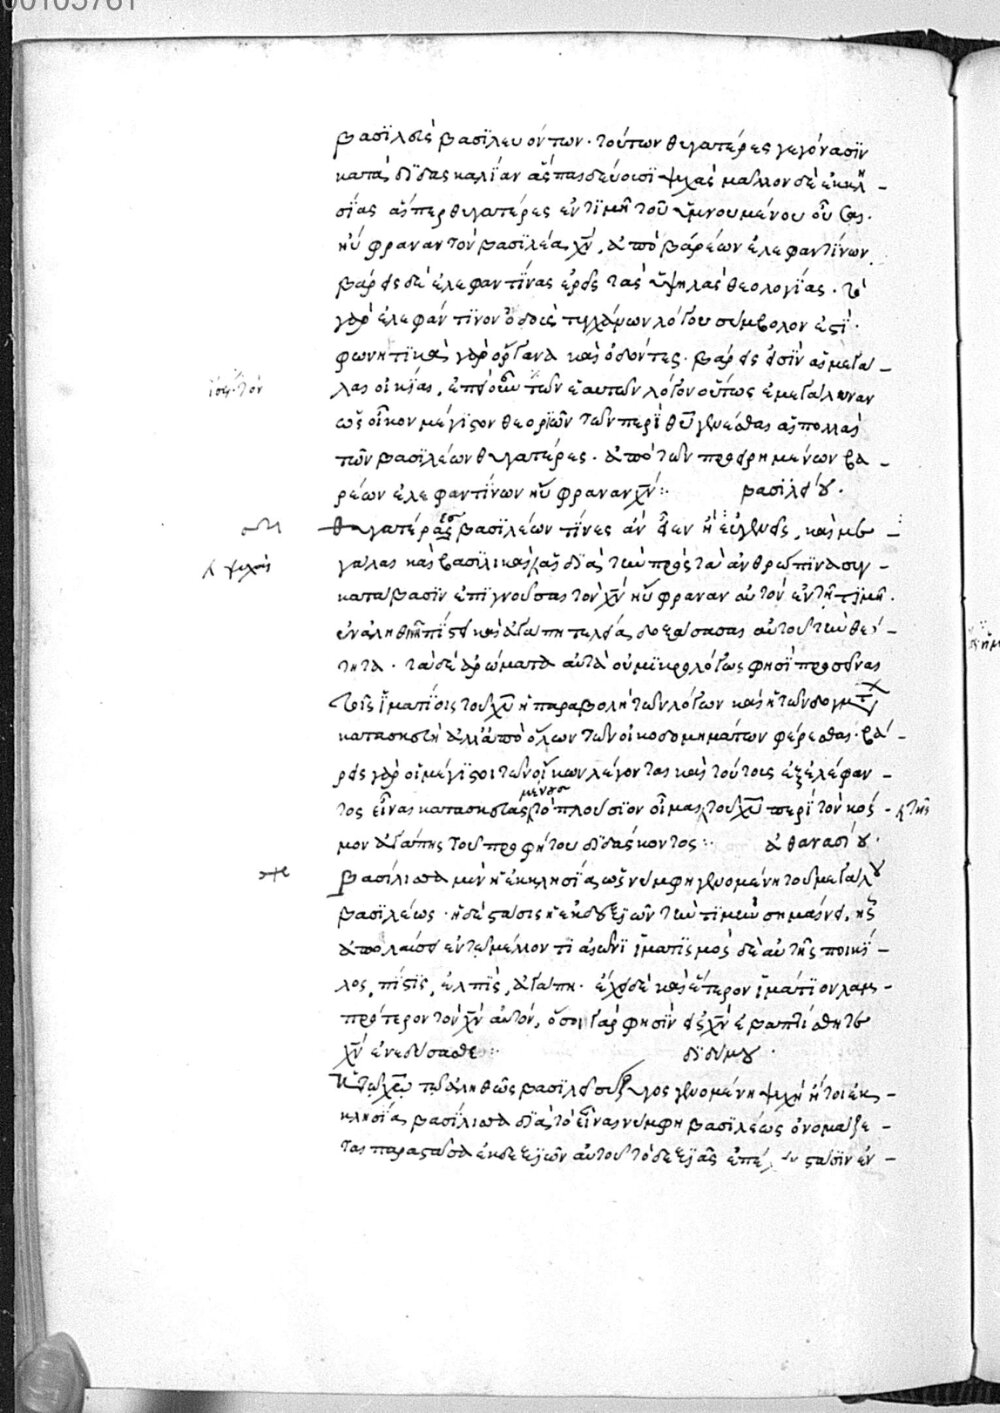 00103761
βασιλεῖς βασιλευόντων· τούτων θυγατέρες γεγόνασιν
καὶ αἱ ἃς παιδεύουσι ψυχὰς μᾶλλον δὲ ἐκκλη
σίας αἵπερ θυγατέρες ἐν τῇ τιμῇ τοῦ ὑμνουμένου οὖσαι·
ηὔφραναν τὸν βασιλέα χν, ἀπὸ βάρεων ἐλεφαντίνων.
βάρεις δὲ ἐλεφαντίνας ἐρεῖς τὰς ὑψηλὰς θεολογίας· τὸ
γὰρ ἐλεφάντινον ὀδοὺς τυγχάνων λόγου σύμβολον ἐστί·
φωνητικὰ γὰρ ὄργανα καὶ ὀδόντες· βάρεις εἰσὶν αἱ μεγά
λαι οἰκίαι, ἐπεὶ οὖν τῶν ἑαυτῶν λόγον οὕτως ἐμεγάλυναν
ὡς οἶκον μέγιστον θεωριῶν τῶν περὶ θυ γενέσθαι αἱ πολλαὶ
τῶν βασιλέων θυγατέρες· ἀπὸ τῶν προειρημένων βά
ρεων ἐλεφαντίνων ηὔφραναν χν: βασιλείου·
ἴσως τὸν
θυγατέρας βασιλέων τίνες ἂν εἶεν ἢ εὐγενεῖς, καὶ με
γάλαι καὶ βασιλικαὶ αἳ διὰ τὴν πρὸς τὰ ἀνθρώπινα συγ
ψυχαὶ
κατάβασιν ἐπιγνοῦσαι τὸν χν ηὔφραναν αὐτὸν ἐν τῇ τιμῇ·
ἐν ἀληθινῇ πίστει καὶ ἀγάπῃ τελείᾳ δοξάσασαι αὐτοῦ τὴν θεό
τητα· τὰ δὲ ἀρώματα αὐτὰ οὐ μικρολόγως φησὶ προσεῖναι
τοῖς ἱματίοις τοῦ χυ ἡ παραβολὴ τῶν λόγων καὶ ἡ τῶν δογμτ
κατασκευὴ ἀλλ' ἀπὸ ὅλων τῶν οἰκοδομημάτων φέρεσθαι· βά
ρεις γὰρ οἱ μέγιστοι τῶν οἴκων λέγονται καὶ τούτους ἐξ ἐλέφαν
τος εἶναι κατασκευασμένας τὸ πλούσιον οἶμαι τοῦ χυ περὶ τὸν κόσ
τῆς
μον ἀγάπης τοῦ προφήτου διδάσκοντος: ἀθανασίου·
βασίλισσα μὲν ἡ ἐκκλησία ὡς νύμφη γενομένη τοῦ μεγάλου
βασιλέως· ἡ δὲ στάσις ἡ ἐκ δεξιῶν τὴν τιμὴν σημαίνει, ἧς
ἀπολαύσει ἐν τῷ μέλλοντι αἰῶνι ἱματισμὸς δὲ αὐτῆς ποικί
λος, πίστις, ἐλπὶς, ἀγάπη· ἔχει δὲ καὶ ἕτερον ἱμάτιον λαμ
πρότερον τὸν χν αὐτὸν, ὅσοι γάρ φησιν εἰς χν ἐβαπτίσθητε
χν ἐνεδύσασθε: διδύμου·
ἡ τῷ χω τῷ ἀληθῶς βασιλεῖ σύζυγος γενομένη ψυχὴ ἤτοι ἐκ
κλησία βασίλισσα διὰ τὸ εἶναι νύμφη βασιλέως ὀνομάζε
ται παραστᾶσα ἐκ δεξιῶν αὐτοῦ τὸ δεξιᾶς στάσιν ἐν